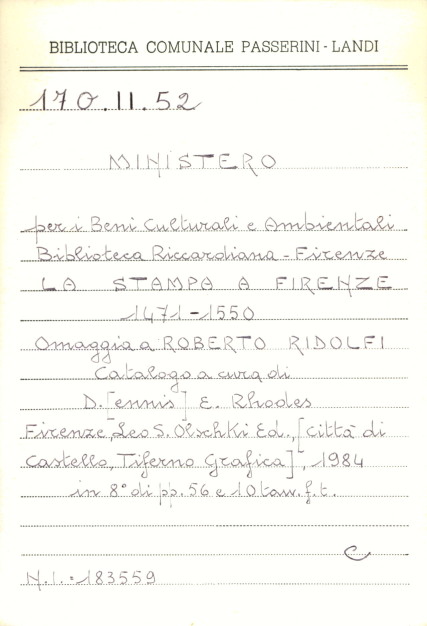 BIBLIOTECA COMUNALE PASSERINI - LANDI
170.II.52
MINISTERO
per i Beni Culturali e Ambientali
Biblioteca Riccardiana - Firenze
LA STAMPA A FIRENZE
1471-1550
Omaggio a ROBERTO RIDOLFI
Catalogo a cura di
D.[ennis] E. Rhodes
Firenze, Leo S. Olschki Ed., [Città di
Castello, Tiferno Grafica], 1984
in 8° di pp. 56 e 10 tav. f. t.
C
N.I.: 183559